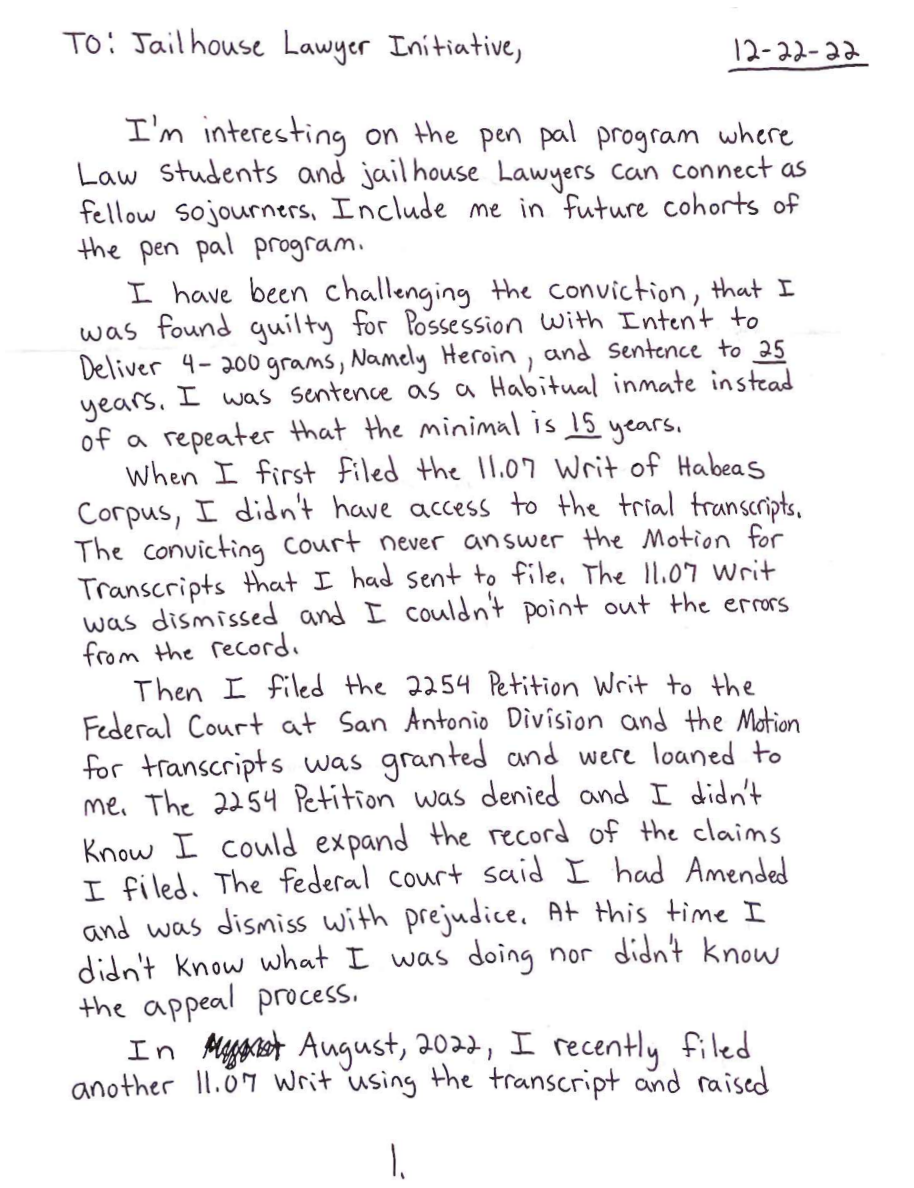 TO: Jailhouse Lawyer Initiative,
12-22-22
I'm interesting on the pen pal program where
Law Students and jailhouse Lawyers can connect as
fellow sojourners. Include me in future cohorts of
the pen pal program.
I have been challenging the conviction, that I
was found guilty for Possession With Intent to
Deliver 4-200 grams, Namely Heroin, and sentence to 25
years. I was sentence as a Habitual inmate instead
of a repeater that the minimal is 15 years.
When I first filed the 11.07 Writ of Habeas
Corpus, I didn't have access to the trial transcripts.
The convicting court never answer the Motion for
Transcripts that I had sent to file. The 11.07 Writ
was dismissed and I couldn't point out the errors
from the record.
Then I filed the 2254 Petition Writ to the
Federal Court at San Antonio Division and the Motion
for transcripts was granted and were loaned to
me. The 2254 Petition was denied and I didn't
Know I could expand the record of the claims
I filed. The federal court said I had Amended
and was dismiss with prejudice. At this time I
didn't know what I was doing nor didn't know
the appeal process.
In August, 2022, I recently filed
another 11.07 Writ using the transcript and raised
1.